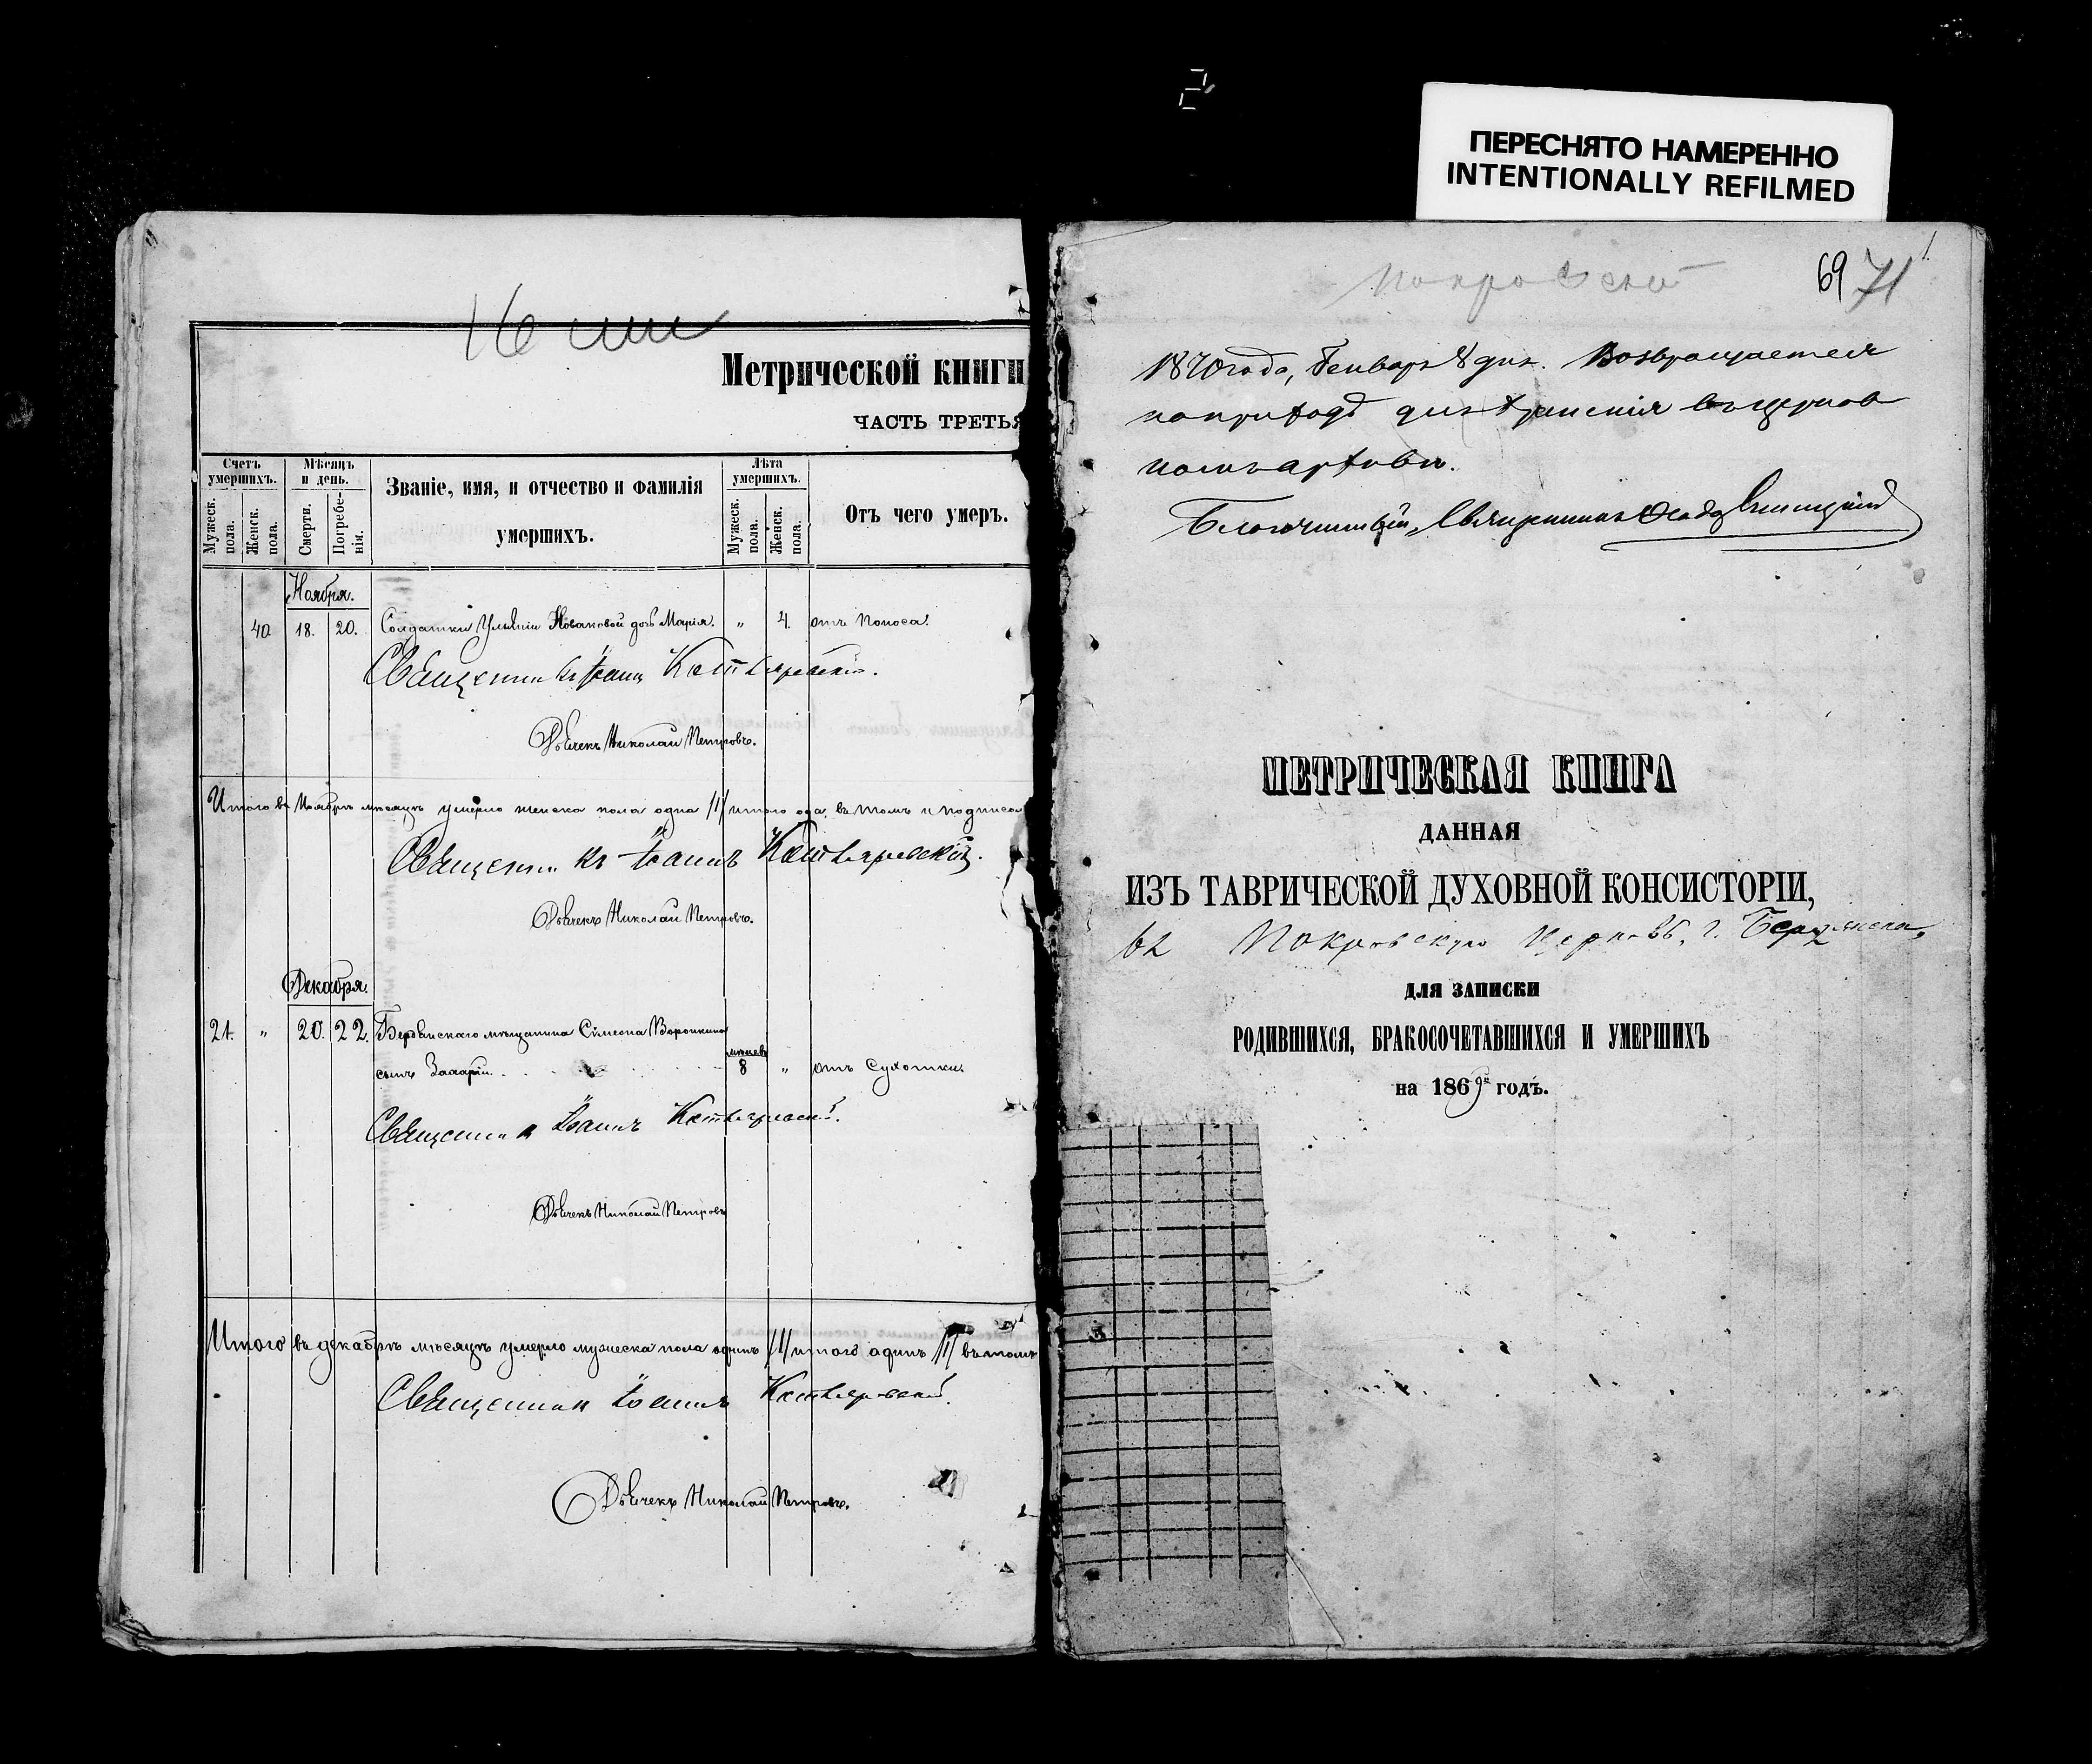 ПЕРЕСНЯТО НАМЕРЕННО
INTENTIONALLY REFILMED
16
Метрической книги
ЧАСТЬ ТРЕТЬЯ
Счетъ умершихъ.
Мѣсяцъ и день.
Званіе, имя, и отчество и фамилія умершихъ.
Лѣта умершихъ.
Отъ чего умеръ.
Мужеск. пола.
Женск. пола.
Смерти.
Погребенія.
Мужеск. пола.
Женск. пола.
Ноября.
40 18. 20. Солдатки Ульянiи Новаковой дочь Марія. „ 4. отъ Поноса.
Священникъ Іоаннъ
Николай Петровъ.
Итого въ Ноябрѣ мѣсяцѣ умерло женска пола одна /1/ итого одна, въ томъ и подписа
Священникъ Іоаннъ
Николай Петровъ.
Декабря.
21. „ 20. 22. Бердянскаго мѣщанина Симеона Воронкина
сынъ Захарій. 8 „ отъ Сухотки
Священникъ Іоаннъ
Николай Петровъ
Итого въ декабрѣ мѣсяцѣ умерло мужеска пола одинъ /1/ итого одинъ /1/ въ томъ
Священникъ Іоаннъ
Николай Петровъ.
Покровской
69 71
1870 года, Генваря 8 дня. Возвращается
въ церков
номъ архивѣ.
Благочинный, Священникъ
МЕТРИЧЕСКАЯ КНИГА
ДАННАЯ
ИЗЪ ТАВРИЧЕСКОЙ ДУХОВНОЙ КОНСИСТОРІИ,
въ Покровскую Церковь, г. Бердянска,
ДЛЯ ЗАПИСКИ
РОДИВШИХСЯ, БРАКОСОЧЕТАВШИХСЯ И УМЕРШИХЪ
на 1869й годъ.